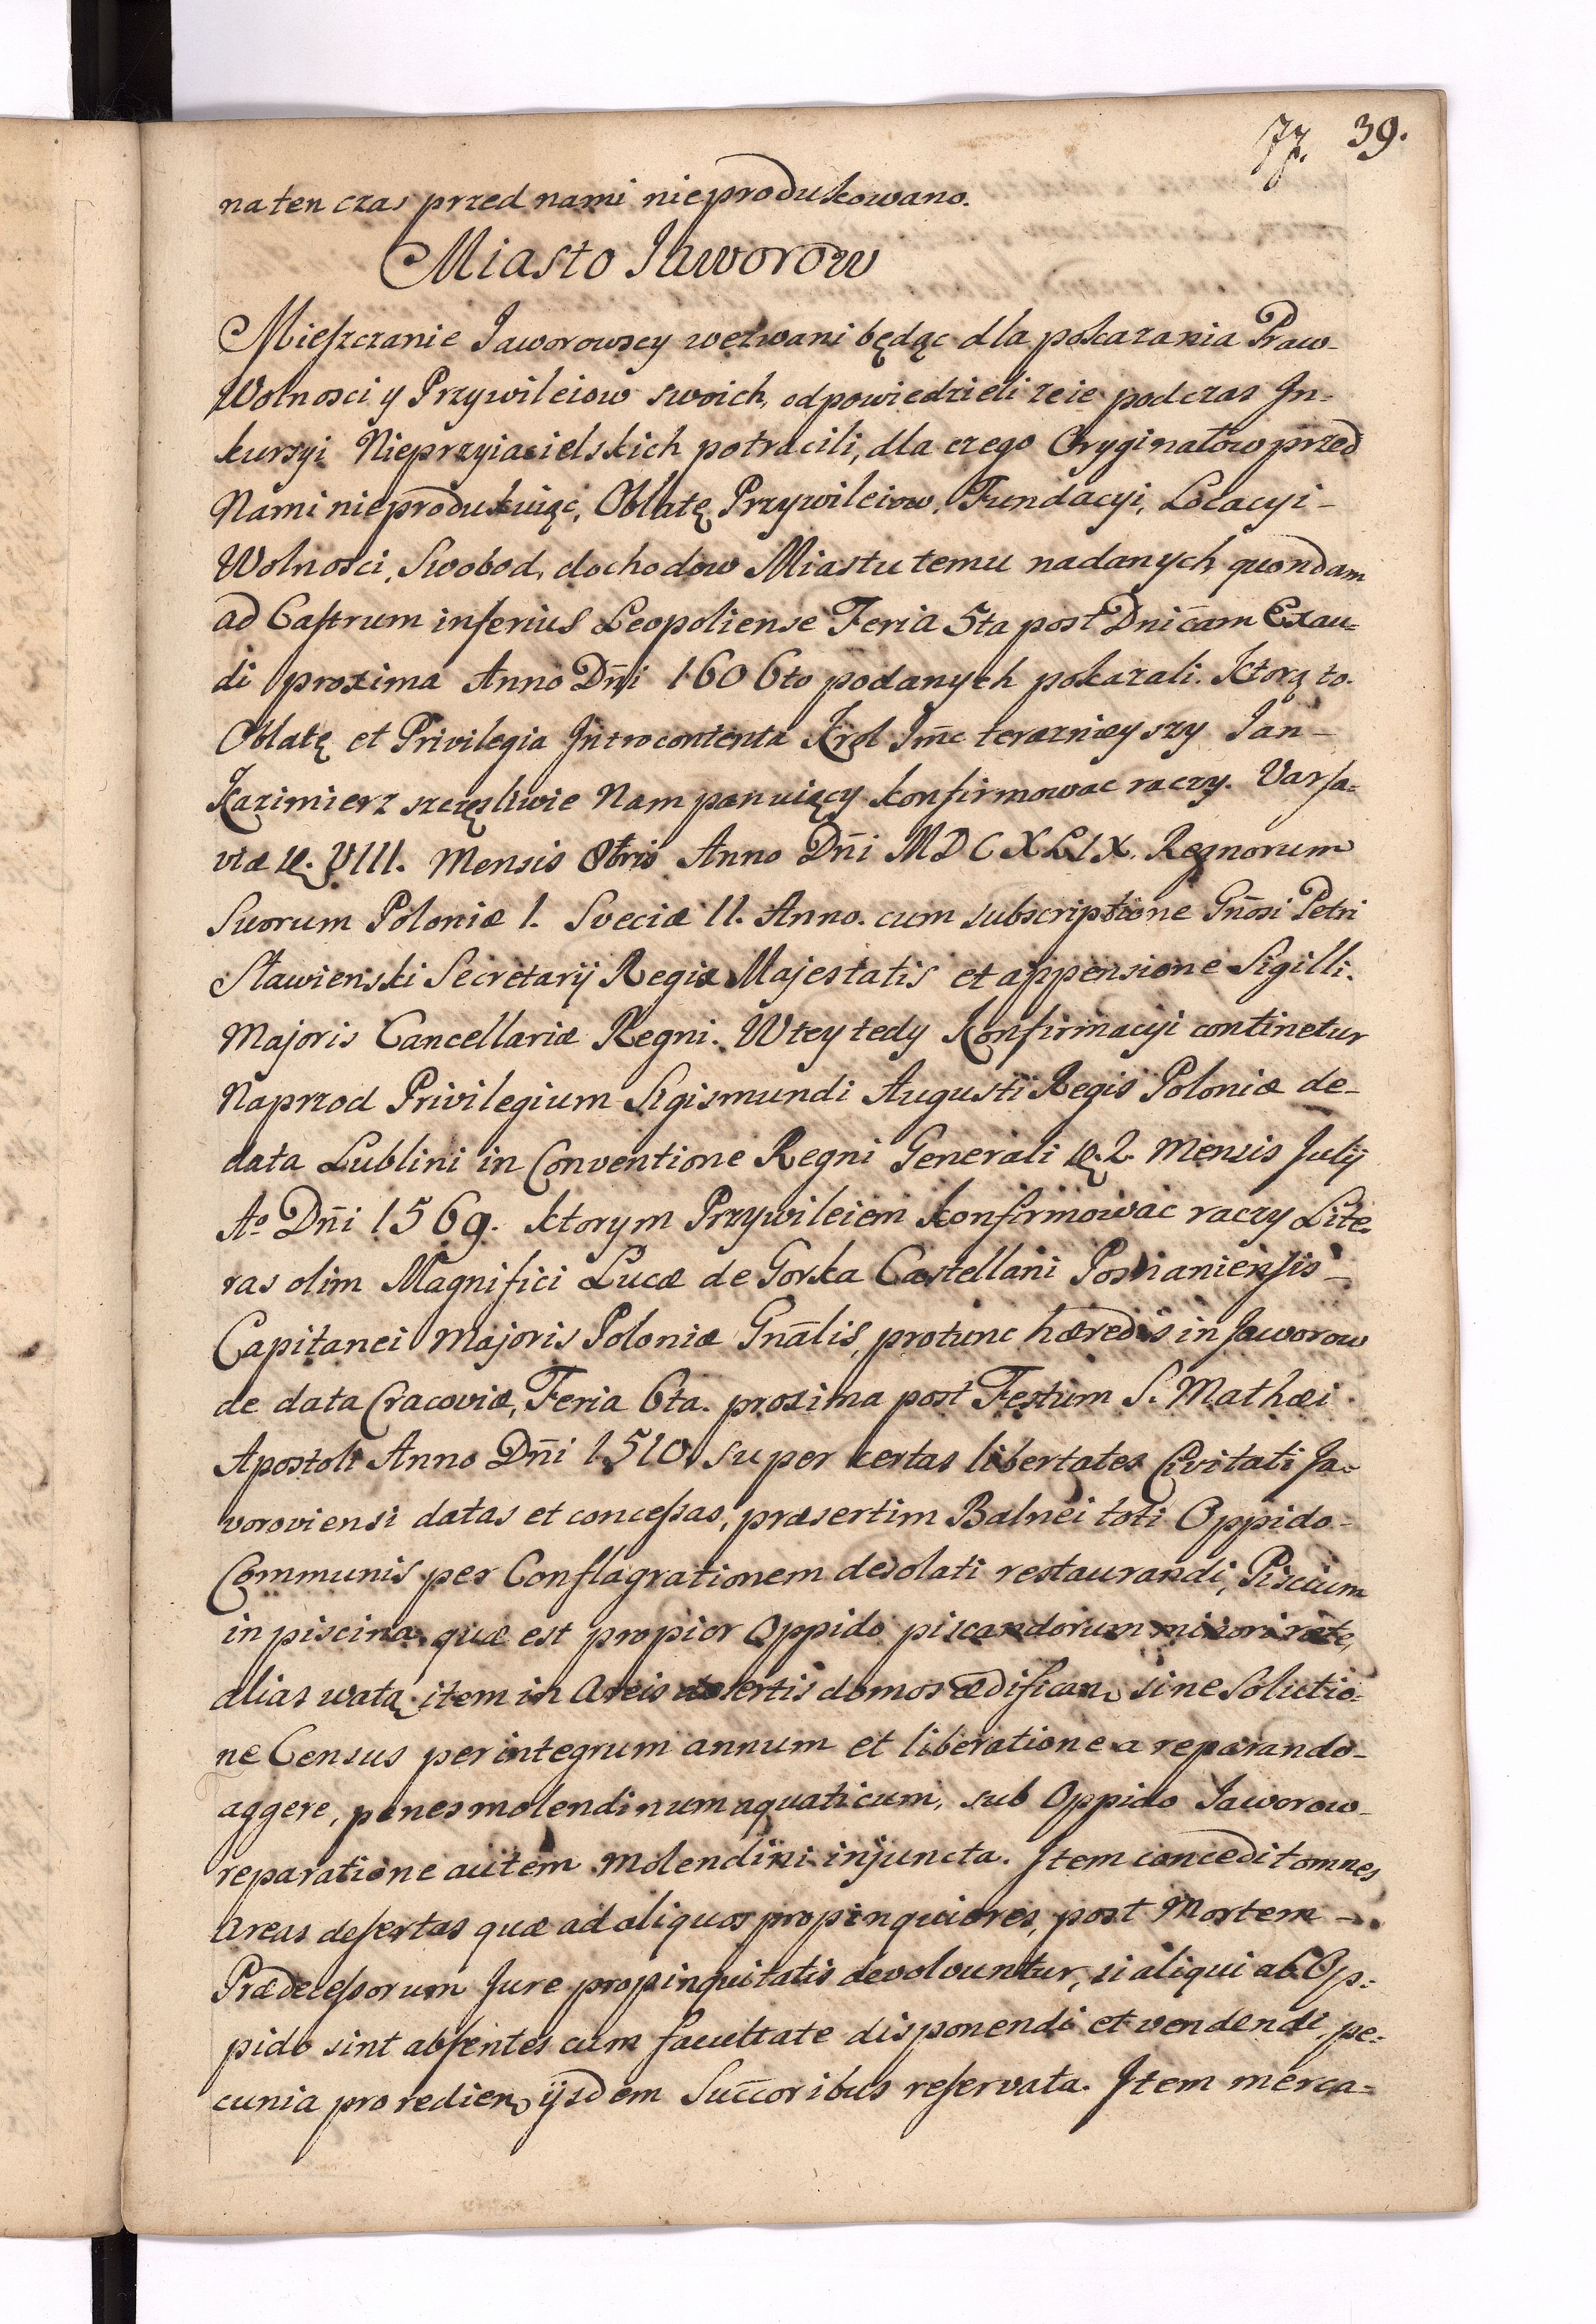 77. 39.
na ten czas przed nami nieprodukowano.
Miasto Jaworow
Mieszczanie Jaworowscy wezwani będąc dla pokazania Praw-
Wolnosci y Przywileiow swoich, odpowiedzieli ze ie podczas In-
kursyi Nieprzyiacielskich potracili, dla czego Oryginałow przed
Nami nieprodukuiąc, Oblatę Przywileiow, Fundacyi, Locacyi-
Wolnosci, Swobod, dochodow Miastu temu nadanych, quondam
ad Castrum inferius Leopoliense Feria 5ta post Dnicam Exau=
di proxima Anno Dñi 1606to podanych pokazali. Ktorą to.
Oblatę et Privilegia Introcontenta Krol Jmc teraznieyszy Jan-
Kazimierz szczęsliwie Nam panuiący konfirmowac raczy. Varsa=
viæ D. VIII. Mensis 8bris Anno Dñi MDCXLIX. Regnorum
Suorum Poloniæ I. Sveciæ II. Anno. cum subscriptione Gñosi Petri
Stawienski Secretarij Regiæ Majestatis et appensione Sigilli.
Majoris Cancellariæ Regni. W tey tedy Konfirmacyi continetur
Naprzod Privilegium Sigismundi Augusti Regis Poloniæ de-
data Lublini in Conventione Regni Generali D. 2. Mensis Julij
Aº Dñi 1569. ktorym Przywileiem konfirmowac raczy Lite-
ras olim Magnifici Lucæ de Gorka Castellani Posnaniensis-
Capitanei Majoris Poloniæ Gnãlis, protunc hæredis in Jaworow
de data Cracoviæ, Feria 6ta. proxima post Festum S. Mathæi
Apostoli Anno Dñi 1510 super certas libertates Civitati Ja=
voroviensi datas et concessas, præsertim Balnei toti Oppido-
Communis per Conflagrationem desolati restaurandi, Piscium
in piscina quæ est propior Oppido piscandorum minori rete,
alias watą item in Areis desertis domos ædifican. sine Solutio-
ne Census per integrum annum et liberatione a reparando-
aggere, penes molendinum aquaticum, sub Oppido Jaworow-
reparatione autem Molendini injuncta. Item concedit omnes
Areas desertas quæ ad aliquos propinquiores, post Mortem-
Prædecessorum Jure propinquitatis devolvuntur, si aliqui ab Op-
pido sint absentes cum facultate disponendi et vendendi, pe-
cunia pro redien. ijsdem Succoribus reservata. Item merca=